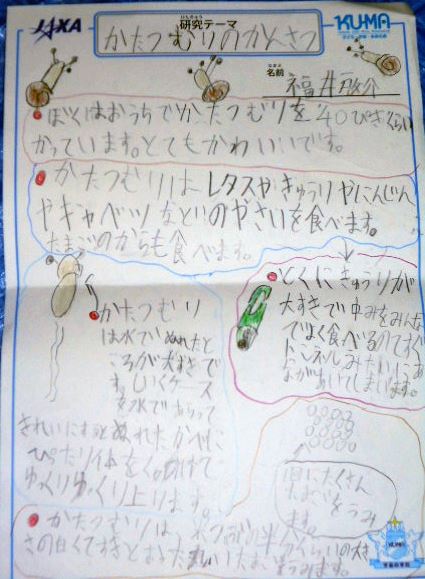 JAXA
けんきゅう
研究テーマ
かたつむりのかんさつ
KU-MA
なまえ
名前
福井
ぼくはおうちでかたつむりを40ぴきくらい
かっています。とてもかわいいです。
かたつむりはレタスやきゅうりやにんじん
やキャベツなどのやさいを食べます。
たまごのからも食べます。
とくにきゅうりが
大すきで中みをみんな
でよく食べるのですぐ
トンネルみたいにあ
ながあいてしまいます。
かたつむり
は水でぬれたと
ころが大すきで
す。しいくケース
を水であらって
きれいにするとぬれたかべに
ぴったり体をくっつけて
ゆっくりゆっくり上ります。
1回にたくさん
たまごをうみ
ます。
かたつむりは、米つぶの半分くらいの大き
さの白くてすきとおった丸いたまごをうみます。
KU-MA
宇宙の学校